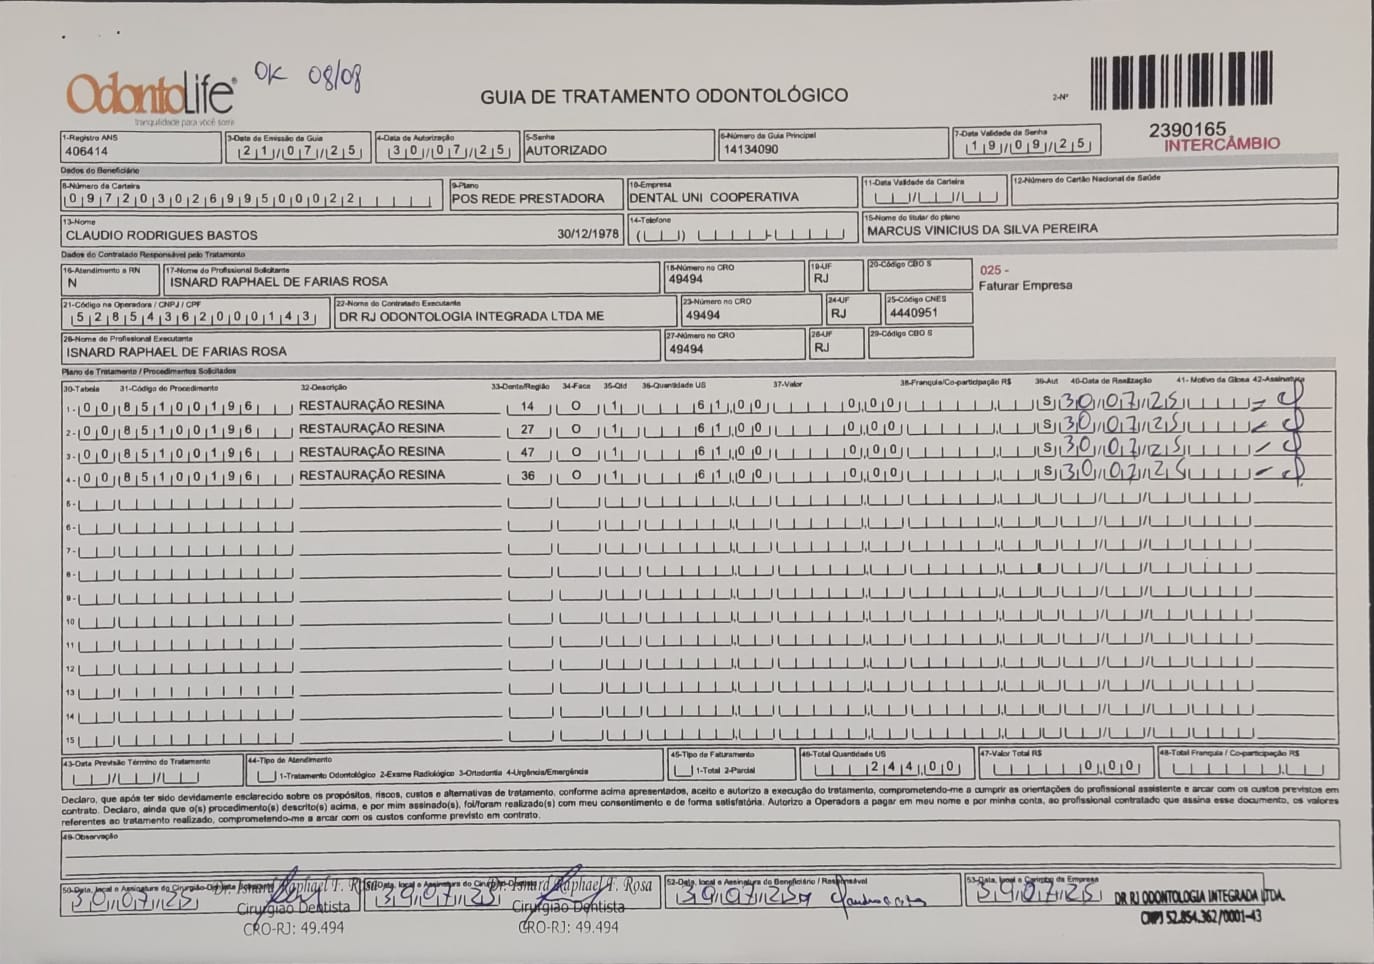 OdontoLife®
tranquilidade para você sorrir
OK 08/08
GUIA DE TRATAMENTO ODONTOLÓGICO
2-Nº
2390165
INTERCÂMBIO
1-Registro ANS 3-Data de Emissão da Guia 4-Data de Autorização 5-Senha 6-Número da Guia Principal 7-Data Validade da Senha
406414 21/07/25 30/07/25 AUTORIZADO 14134090 19/09/25
Dados do Beneficiário
8-Número da Carteira 9-Plano 10-Empresa 11-Data Validade da Carteira 12-Número do Cartão Nacional de Saúde
09720302699500022 POS REDE PRESTADORA DENTAL UNI COOPERATIVA
13-Nome 14-Telefone 15-Nome do titular do plano
CLAUDIO RODRIGUES BASTOS 30/12/1978 MARCUS VINICIUS DA SILVA PEREIRA
Dados do Contratado Responsável pelo Tratamento
16-Atendimento a RN 17-Nome do Profissional Solicitante 18-Número no CRO 19-UF 20-Código CBO S
N ISNARD RAPHAEL DE FARIAS ROSA 49494 RJ
025 -
Faturar Empresa
21-Código na Operadora / CNPJ / CPF 22-Nome do Contratado Executante 23-Número no CRO 24-UF 25-Código CNES
52854362000143 DR RJ ODONTOLOGIA INTEGRADA LTDA ME 49494 RJ 4440951
26-Nome do Profissional Executante 27-Número no CRO 28-UF 29-Código CBO S
ISNARD RAPHAEL DE FARIAS ROSA 49494 RJ
Plano de Tratamento / Procedimentos Solicitados
30-Tabela 31-Código do Procedimento 32-Descrição 33-Dente/Região 34-Face 35-Qtd 36-Quantidade US 37-Valor 38-Franquia/Co-participação R$ 39-Aut 40-Data de Realização 41- Motivo da Glosa 42-Assinatura
1- 00 85100196 RESTAURAÇÃO RESINA 14 O 1 61,00 0,00 S 30/07/25
2- 00 85100196 RESTAURAÇÃO RESINA 27 O 1 61,00 0,00 S 30/07/25
3- 00 85100196 RESTAURAÇÃO RESINA 47 O 1 61,00 0,00 S 30/07/25
4- 00 85100196 RESTAURAÇÃO RESINA 36 O 1 61,00 0,00 S 30/07/25
5-
6-
7-
8-
9-
10
11
12
13
14
15
43-Data Previsão Término do Tratamento 44-Tipo de Atendimento 45-Tipo de Faturamento 46-Total Quantidade US 47-Valor Total R$ 48-Total Franquia / Co-participação R$
1-Tratamento Odontológico 2-Exame Radiológico 3-Ortodontia 4-Urgência/Emergência 1-Total 2-Parcial 244,00 0,00
Declaro, que após ter sido devidamente esclarecido sobre os propósitos, riscos, custos e alternativas de tratamento, conforme acima apresentados, aceito e autorizo a execução do tratamento, comprometendo-me a cumprir as orientações do profissional assistente e arcar com os custos previstos em
contrato. Declaro, ainda que o(s) procedimento(s) descrito(s) acima, e por mim assinado(s), foi/foram realizado(s) com meu consentimento e de forma satisfatória. Autorizo a Operadora a pagar em meu nome e por minha conta, ao profissional contratado que assina esse documento, os valores
referentes ao tratamento realizado, comprometendo-me a arcar com os custos conforme previsto em contrato.
49-Observação
50-Data, local e Assinatura do Cirurgião-Dentista 52-Data, local e Assinatura do Beneficiário / Responsável 53-Data, local e Carimbo da Empresa
30/07/25 Dr. Isnard Raphael F. Rosa 30/07/25 Dr. Isnard Raphael F. Rosa 30/07/25 30/07/25 DR RJ ODONTOLOGIA INTEGRADA LTDA.
Cirurgião Dentista Cirurgião Dentista CNPJ 52.854.362/0001-43
CRO-RJ: 49.494 CRO-RJ: 49.494